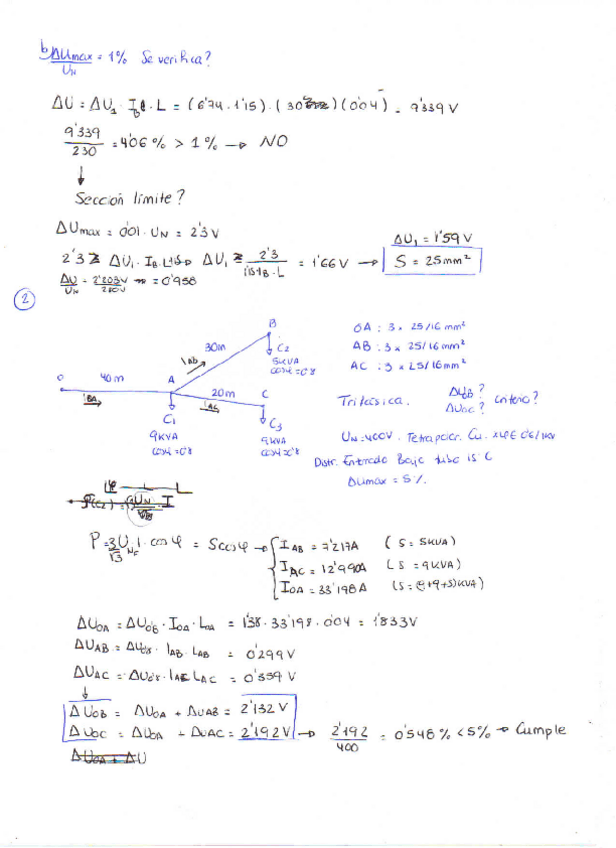 b) ΔUmax/UN = 1% Se verifica?
ΔU = ΔU1 · IB · L = (6'74 · 1'15) · (30) (0'04) = 9'339 V
9'339/230 = 4'06 % > 1 % → NO
↓
Sección límite?
ΔUmax = 0'01 · UN = 2'3 V
ΔU1 = 1'59 V
2'3 ≥ ΔU1 · IB · L ΔU1 ≥ 2'3/1'15 · IB · L = 1'66 V → S = 25 mm²
ΔU/UN = 2'203V = 0'958
2
B
30m
IAB
C2
5KVA
cosφ = 0'8
O
40m
A
20m
C
IOA
IAC
C1
9KVA
cosφ = 0'8
C3
9KVA
cosφ = 0'8
OA : 3 x 25/16 mm²
AB : 3 x 25/16 mm²
AC : 3 x 25/16 mm²
Trifásica. ΔUOB? ΔUOC? Criterio?
UN = 400V. Tetrapolar. Cu. XLPE 0'6/1KV
Distr. Enterrada Bajo tubo 15°C
ΔUmax = 5%
P = 3 UN/√3 · I · cosφ = S cosφ → IAB = 7'217A (S = 5KVA)
IAC = 12'990A (S = 9KVA)
IOA = 33'198A (S = (9+9+5)KVA)
ΔUOA = ΔU0'8 · IOA · LOA = 1'38 · 33'198 · 0'04 = 1'833V
ΔUAB = ΔU0'8 · IAB · LAB = 0'299V
ΔUAC = ΔU0'8 · IAC LAC = 0'359V
↓
ΔUOB = ΔUOA + ΔUAB = 2'132 V
ΔUOC = ΔUOA + ΔUAC = 2'192 V → 2'192/400 = 0'548 % < 5% → Cumple
ΔUOA + ΔU